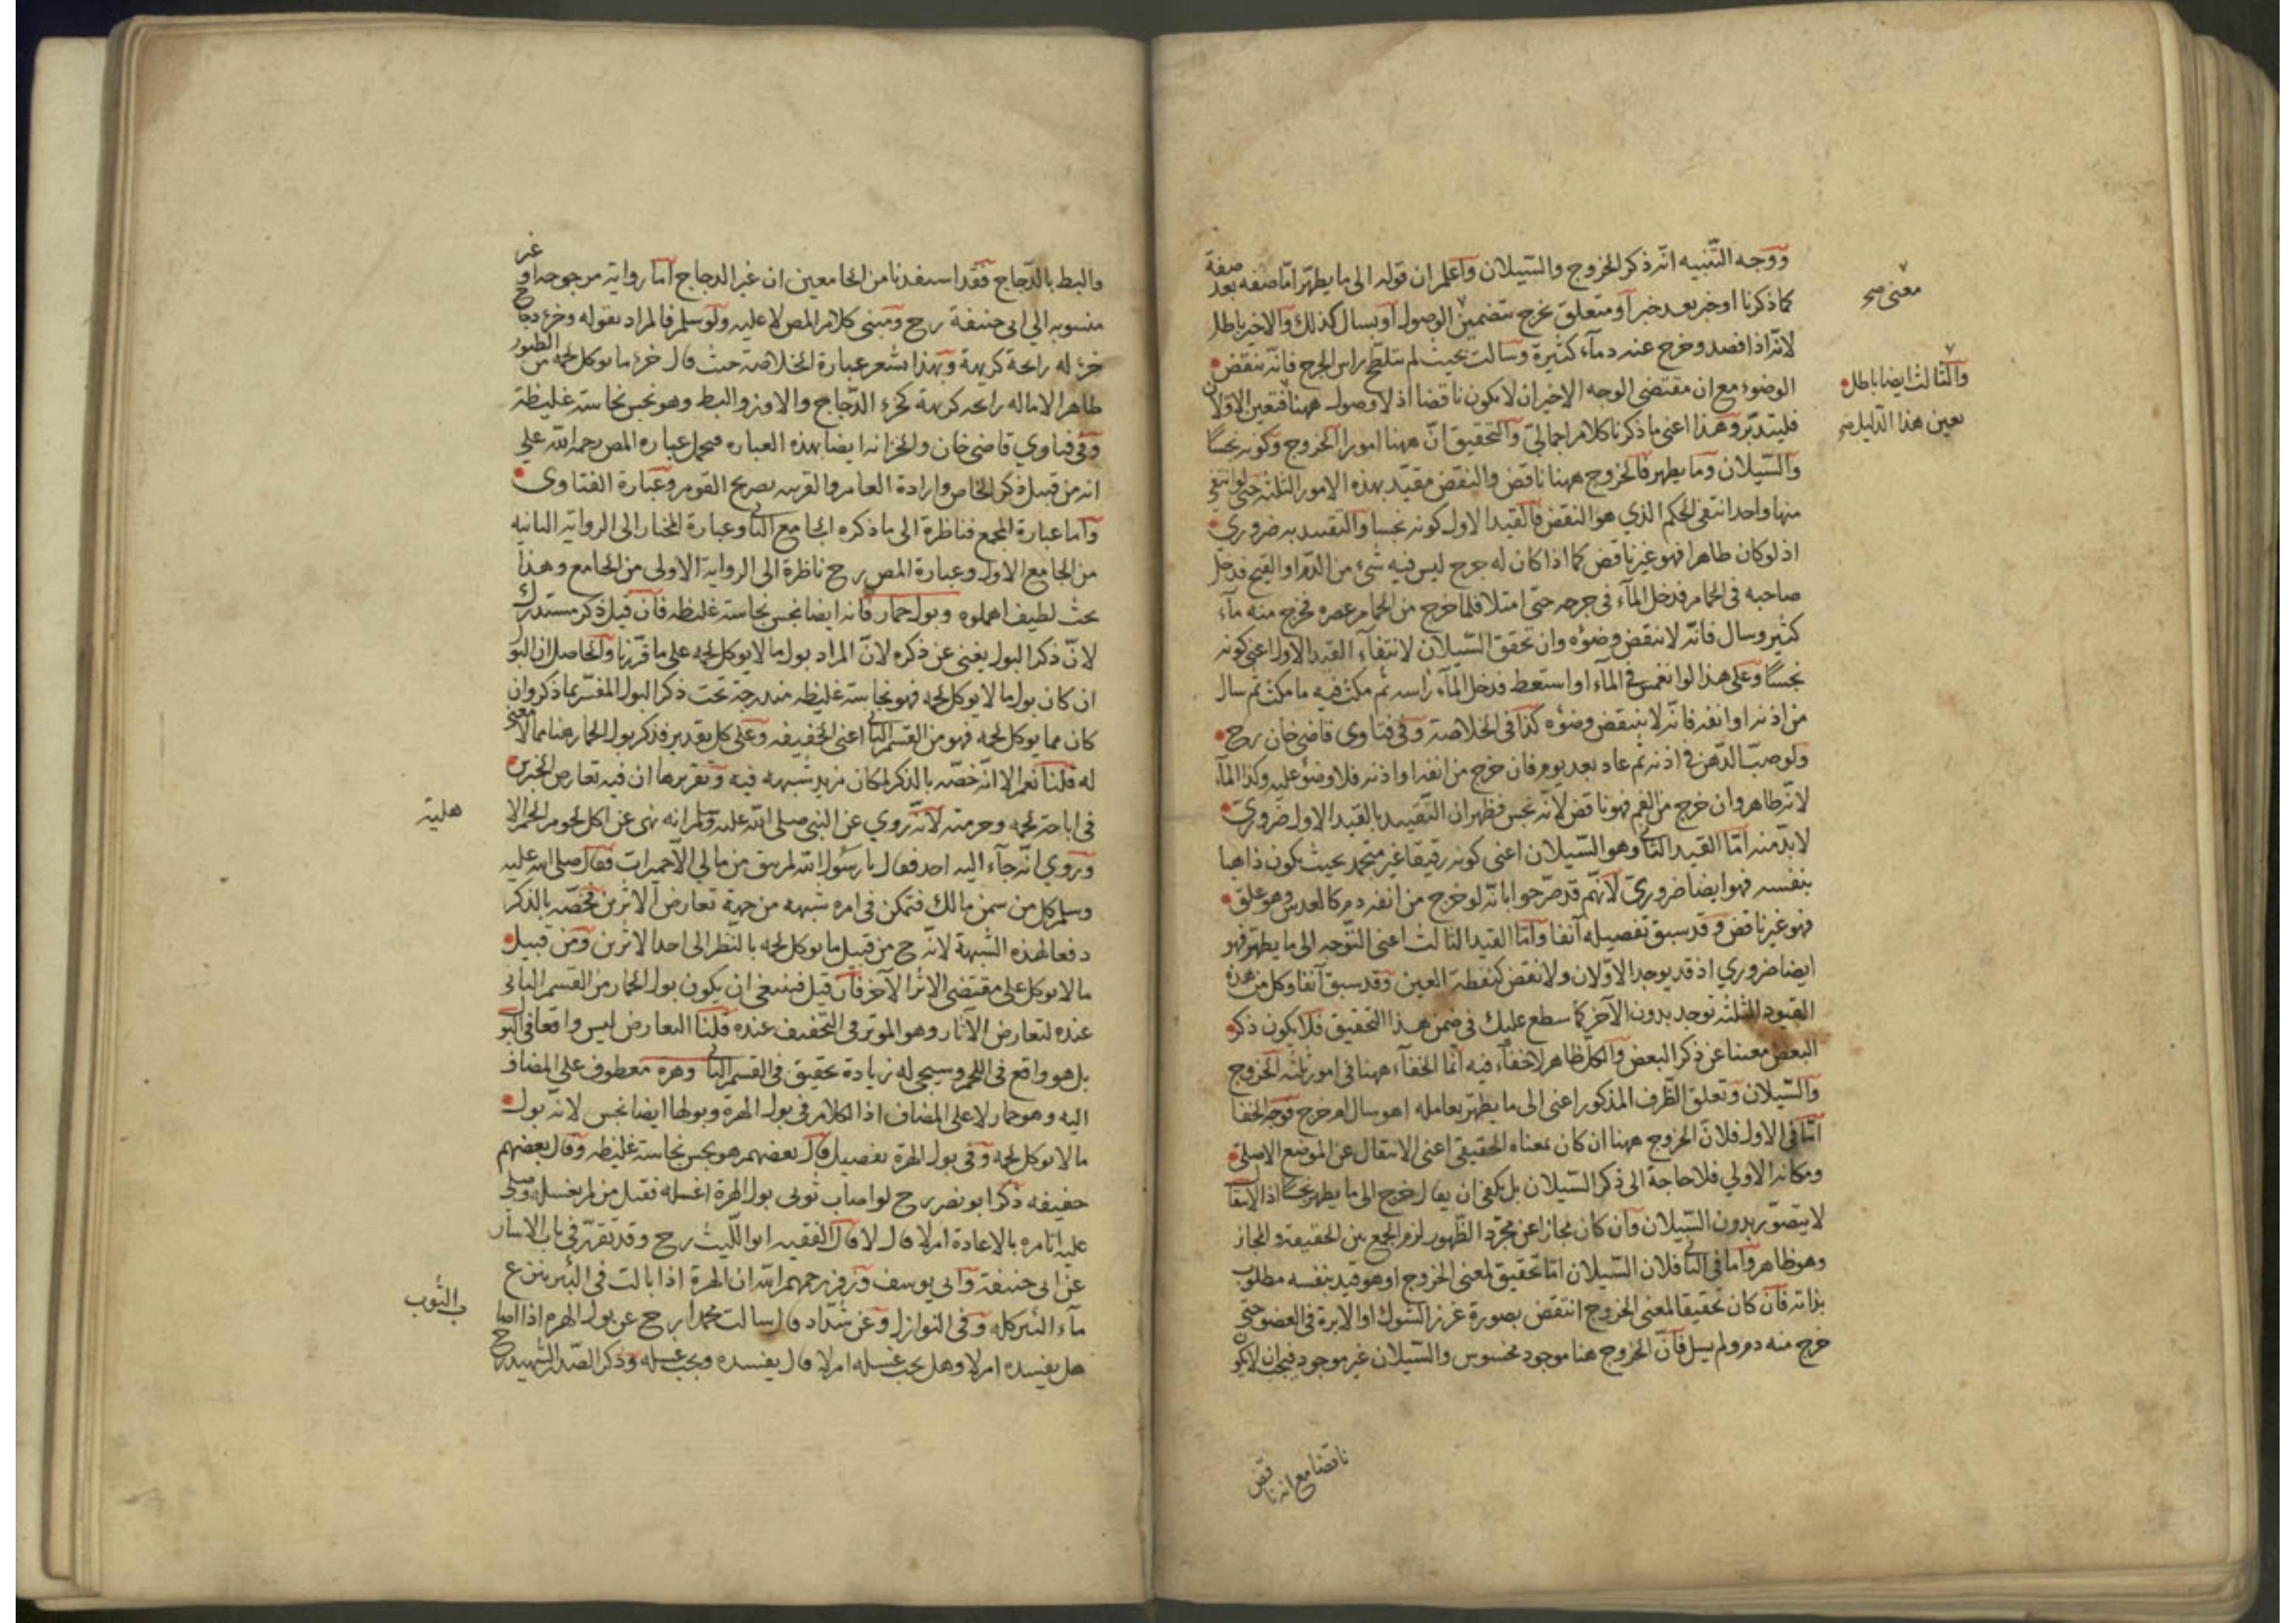 ووجه التنبيه انه ذكر الخروج والسيلان واعلم ان قوله الى ما يطهر اما صفة بعد صفة
كما ذكرنا او خبر بعد خبر او متعلق بخرج بتضمين الوصول او بسال كذلك والاخير باطل
لانه اذا فصد وخرج عنه دماء كثيرة وسالت بحيث لم يتلطخ راس الجرح فانه ينقض
الوضوء مع ان مقتضى الوجه الاخير ان لا يكون ناقضا اذ لا وصول ههنا فتعين الاولان
فليتدبر وهذا اعنى ما ذكرنا كلام اجمالي والتحقيق ان ههنا امورا الخروج وكونه نجسا
والسيلان وما يطهر فالخروج ههنا ناقض والنقض مقيد بهذه الامور الثلثة حتى لو انتفى
منها واحد انتفى الحكم الذي هو النقض فالقيد الاول كونه نجسا والتقييد به ضروري
اذ لو كان طاهرا فهو غير ناقض كما اذا كان له جرح ليس فيه شئ من الدم او القيح فدخل
صاحبه في الحمام فدخل الماء في جرحه حتى امتلا فلما خرج من الحمام عصره فخرج منه ماء
كثير وسال فانه لا ينقض وضوءه وان تحقق السيلان لانتفاء القيد الاول اعنى كونه
نجسا وعلى هذا لو انغمس في الماء او استعط فدخل الماء راسه ثم مكث فيه ما مكث ثم سال
من اذنه او انفه فانه لا ينتقض وضوءه كذا في الخلاصة وفي فتاوى قاضي خان رح
ولو صب الدهن في اذنه ثم عاد بعد يوم فان خرج من انفه او اذنه فلا وضوء عليه وكذا الماء
لانه طاهر وان خرج من الفم فهو ناقض لانه نجس فظهر ان التقييد بالقيد الاول ضروري
لا بد منه اما القيد الثاني وهو السيلان اعنى كونه رقيقا غير متجمد بحيث يكون ذاهبا
بنفسه فهو ايضا ضروري لانهم قد صرحوا بانه لو خرج من انفه دم كالعدس وهو علق
فهو غير ناقض وقد سبق تفصيله آنفا واما القيد الثالث اعنى التوجه الى ما يطهر فهو
ايضا ضروري اذ قد يوجد الاولان ولا نقض كنفطة العين وقد سبق آنفا وكل من هذه
القيود الثلثة توجد بدون الآخر كما سطع عليك في ضمن هذا التحقيق فلا يكون ذكر
البعض مغنيا عن ذكر البعض والكل ظاهر لا خفاء فيه انما الخفاء ههنا في امور ثلثة الخروج
والسيلان وتعلق الظرف المذكور اعنى الى ما يطهر بعامله اهو سال ام خرج فوجه الخفا
اما في الاول فلان الخروج ههنا ان كان بمعناه الحقيقي اعنى الانتقال عن الموضع الاصلي
ومكانه الاولي فلا حاجة الى ذكر السيلان بل يكفي ان يقال خرج الى ما يطهر نجسا اذ الانتقال
لا يتصور بدون السيلان وان كان مجازا عن مجرد الظهور لزم الجمع بين الحقيقة والمجاز
وهو ظاهر واما في الثاني فلان السيلان اما تحقيق لمعنى الخروج او هو قيد بنفسه مطلوب
بذاته فان كان تحقيقا لمعنى الخروج انتقض بصورة غرز الشوك او الابرة في العضو حتى
خرج منه دم ولم يسل فان الخروج هنا موجود محسوس والسيلان غير موجود فيجب ان لا يكون
ناقضا مع انه ناقض
معنى صح
والثالث ايضا باطل
بعين هذا الدليل صح
والبط بالدجاج فقد استفدنا من الجامعين ان غير الدجاج اما رواية مرجوحة او غير
منسوبه الى ابى حنيفة رح ومبنى كلام المص لا عليه ولو سلم فالمراد بقوله وخرء دجاج
خرء له رايحة كريهة وبهذا يشعر عبارة الخلاصة حيث قال خرء ما يوكل لحمه من الطيور
طاهر الا ما له رايحه كريهة كخرء الدجاج والاوز والبط وهو نجس نجاسة غليظة
وفي فتاوي قاضى خان والخزانه ايضا بهذه العباره فيحمل عباره المص رحمه الله على
انه من قبيل ذكر الخاص وارادة العام والقرينه تصريح القوم وعبارة الفتاوى
واما عبارة المجمع فناظرة الى ما ذكره الجامع الثاني وعبارة المختار الى الرواية الثانيه
من الجامع الاول وعبارة المص رح ناظرة الى الرواية الاولى من الجامع وهذا
بحث لطيف اهملوه وبول حمار فانه ايضا نجس نجاسة غليظه فان قيل ذكر مستدرك
لان ذكر البول يغنى عن ذكره لان المراد بول ما لا يوكل لحمه على ما قررنا والحاصل ان البول
ان كان بول ما لا يوكل لحمه فهو نجاسة غليظه مندرجة تحت ذكر البول المفسر بما ذكر وان
كان مما يوكل لحمه فهو من القسم الثاني اعنى الخفيفه وعلى كل تقدير فذكر بول الحمار هنا مما لا معنى
له قلنا نعم الا انه خصه بالذكر لمكان مزيد شبهه فيه وتقريرها ان فيه تعارض الخبرين
في اباحة لحمه وحرمته لانه روي عن النبي صلى الله عليه وسلم انه نهى عن اكل لحوم الحمر الا
هلية
وروي انه جآء اليه احد فقال يا رسول الله لم يبق من مالي الا حميرات فقال صلى الله عليه
وسلم كل من سمن مالك فتمكن في امره شبهه من جهة تعارض الاثرين فخصه بالذكر
دفعا لهذه الشبهة لانه ح من قبيل ما يوكل لحمه بالنظر الى احد الاثرين ومن قبيل
ما لا يوكل على مقتضى الاثر الآخر فان قيل فينبغى ان يكون بول الحمار من القسم الثانى
عنده لتعارض الآثار وهو الموثر في التخفيف عنده قلنا التعارض ليس واقعا في البول
بل هو واقع في اللحم وسيجى له زيادة تحقيق في القسم الثاني وهرة معطوف على المضاف
اليه وهو حمار لا على المضاف اذ الكلام في بول الهرة وبولها ايضا نجس لانه بول
ما لا يوكل لحمه وفي بول الهرة تفصيل قال بعضهم هو نجس نجاسة غليظه وقال بعضهم
خفيفه ذكر ابو نصر رح لو اصاب ثوبى بول الهرة اغسله فقيل من لم يغسله وصلى
عليه اتامره بالاعادة ام لا قال لا قال الفقيه ابو الليث رح وقد تقرر في باب الاسار
عن ابى حنيفة وابى يوسف وزفر رحمهم الله ان الهرة اذا بالت في البئر ينزع
ماء البئر كله وفي النوازل وعن شداد قال سالت محمدا رح عن بول الهرة اذا اصاب
الثوب
هل يفسده ام لا وهل يجب غسله ام لا قال يفسده ويجب غسله وذكر الصدر الشهيد رح